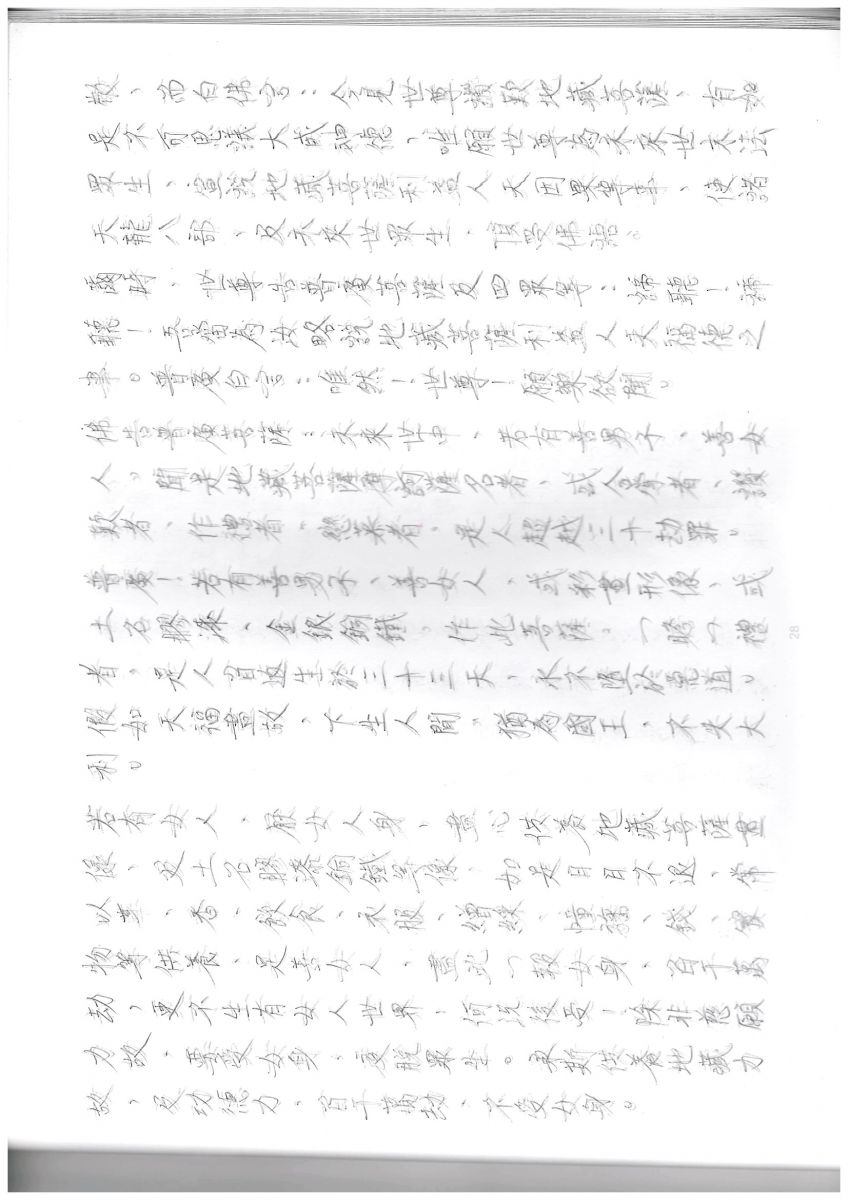 敬、而白佛言：今見世尊讚歎地藏菩薩、有如
是不可思議大威神德，唯願世尊為未來世末法
眾生、宣說地藏菩薩利益人天因果等事、使諸
天龍八部、及未來世眾生、頂受佛語。
爾時、世尊告普廣菩薩及四眾等：諦聽！諦
聽！吾當為汝略說地藏菩薩利益人天福德之
事。普廣白言：唯然！世尊！願樂欲聞。
佛告普廣菩薩：未來世中、若有善男子、善女
人。聞是地藏菩薩摩訶薩名者、或合掌者、讚
歎者、作禮者、戀慕者，是人超越三十劫罪。
普廣！若有善男子、善女人，或彩畫形像、或
土石膠漆、金銀銅鐵。作此菩薩。一瞻一禮
者，是人百返生於三十三天，永不墮於惡道。
假如天福盡故、下生人間。猶為國王，不失大
利。
若有女人、厭女人身、盡心供養地藏菩薩畫
像、及土石膠漆銅鐵等像、如是日日不退、常
以華、香、飲食、衣服、繒綵、幢旛、錢、寶
物等供養、是善女人、盡此一報女身、百千萬
劫，更不生有女人世界，何況復受！除非慈願
力故、要受女身、度脫眾生。承斯供養地藏力
故、及功德力、百千萬劫、不受女身。
28